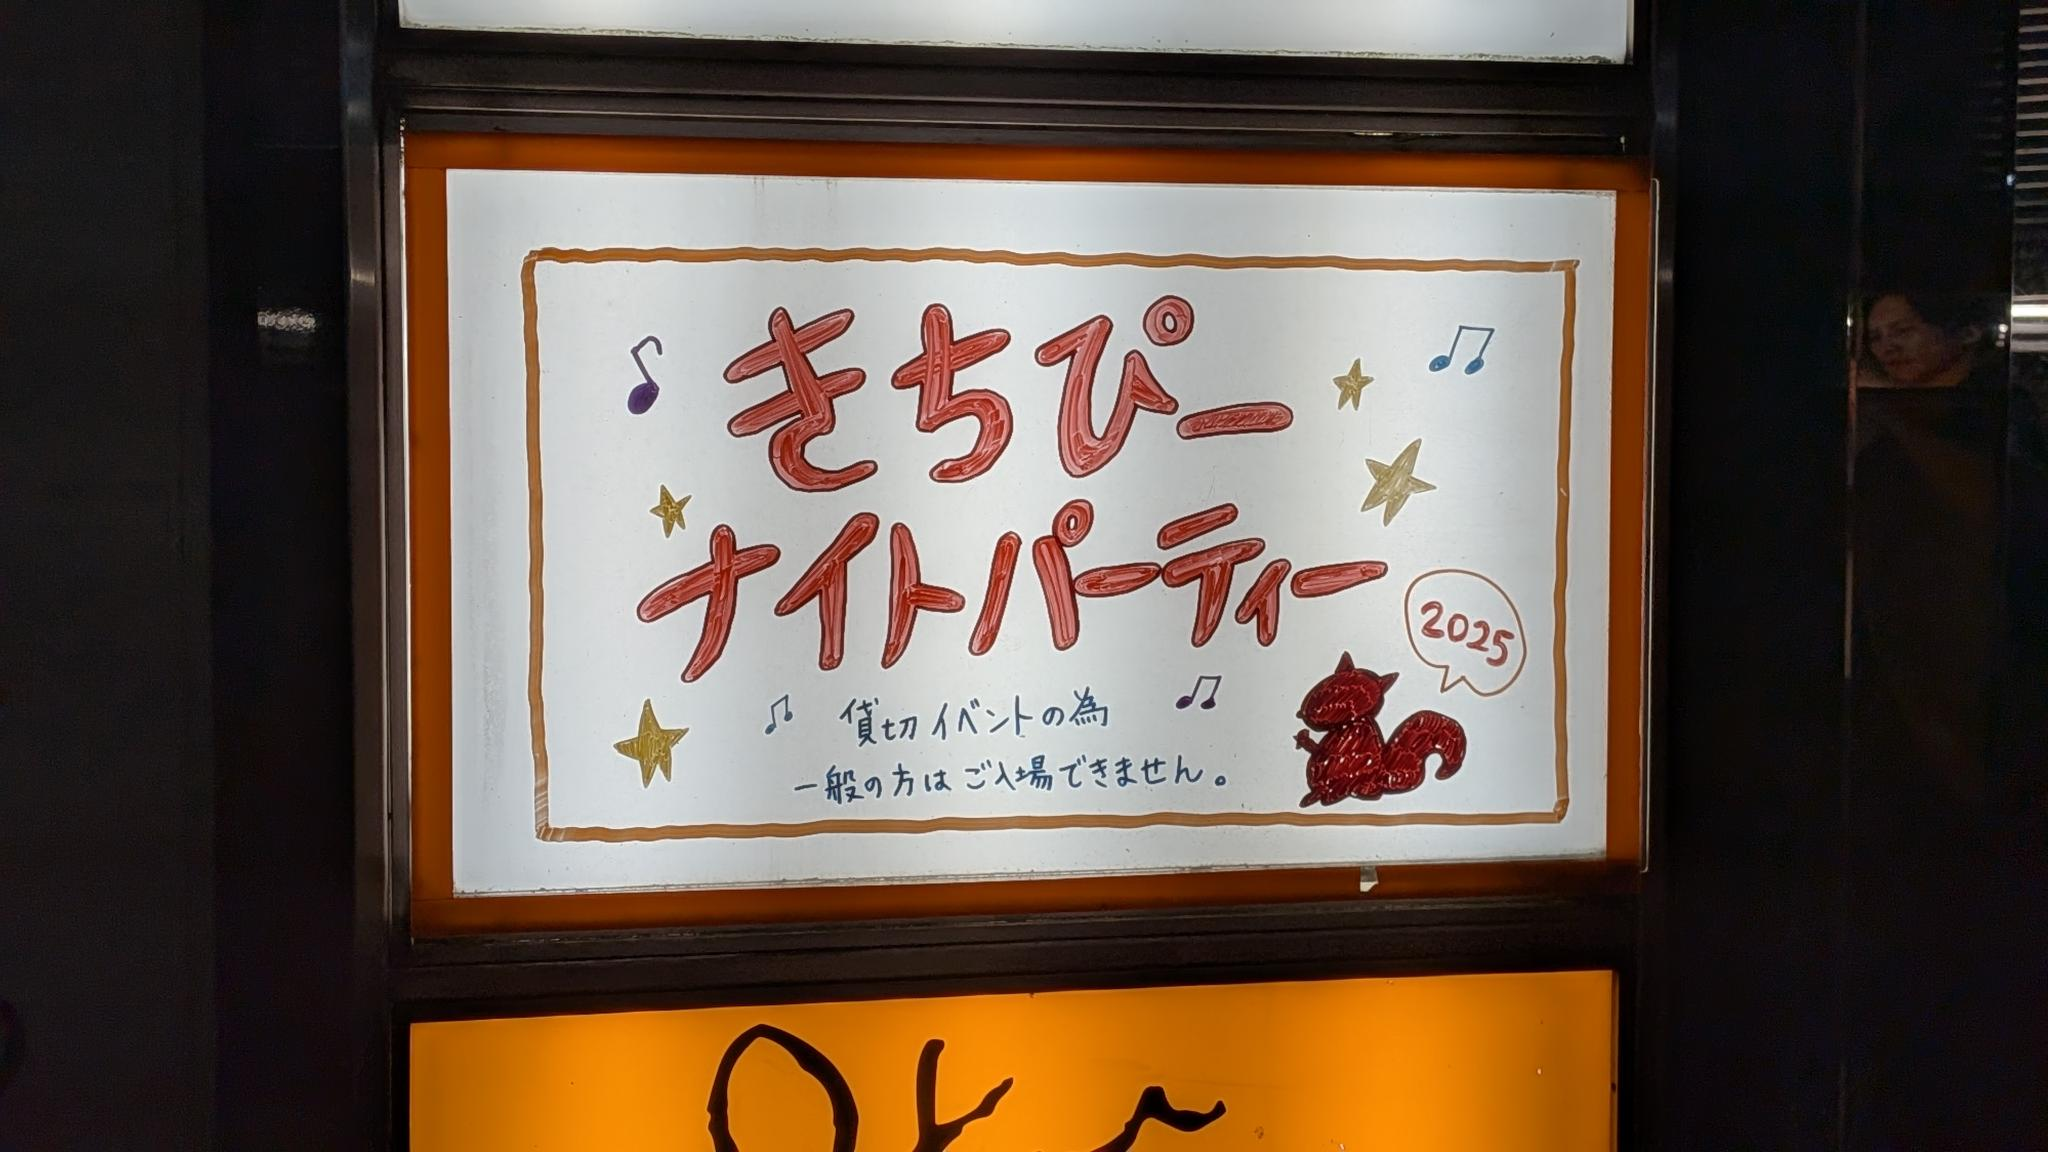 きちぴー
ナイトパーティー
2025
貸切イベントの為
一般の方はご入場できません。